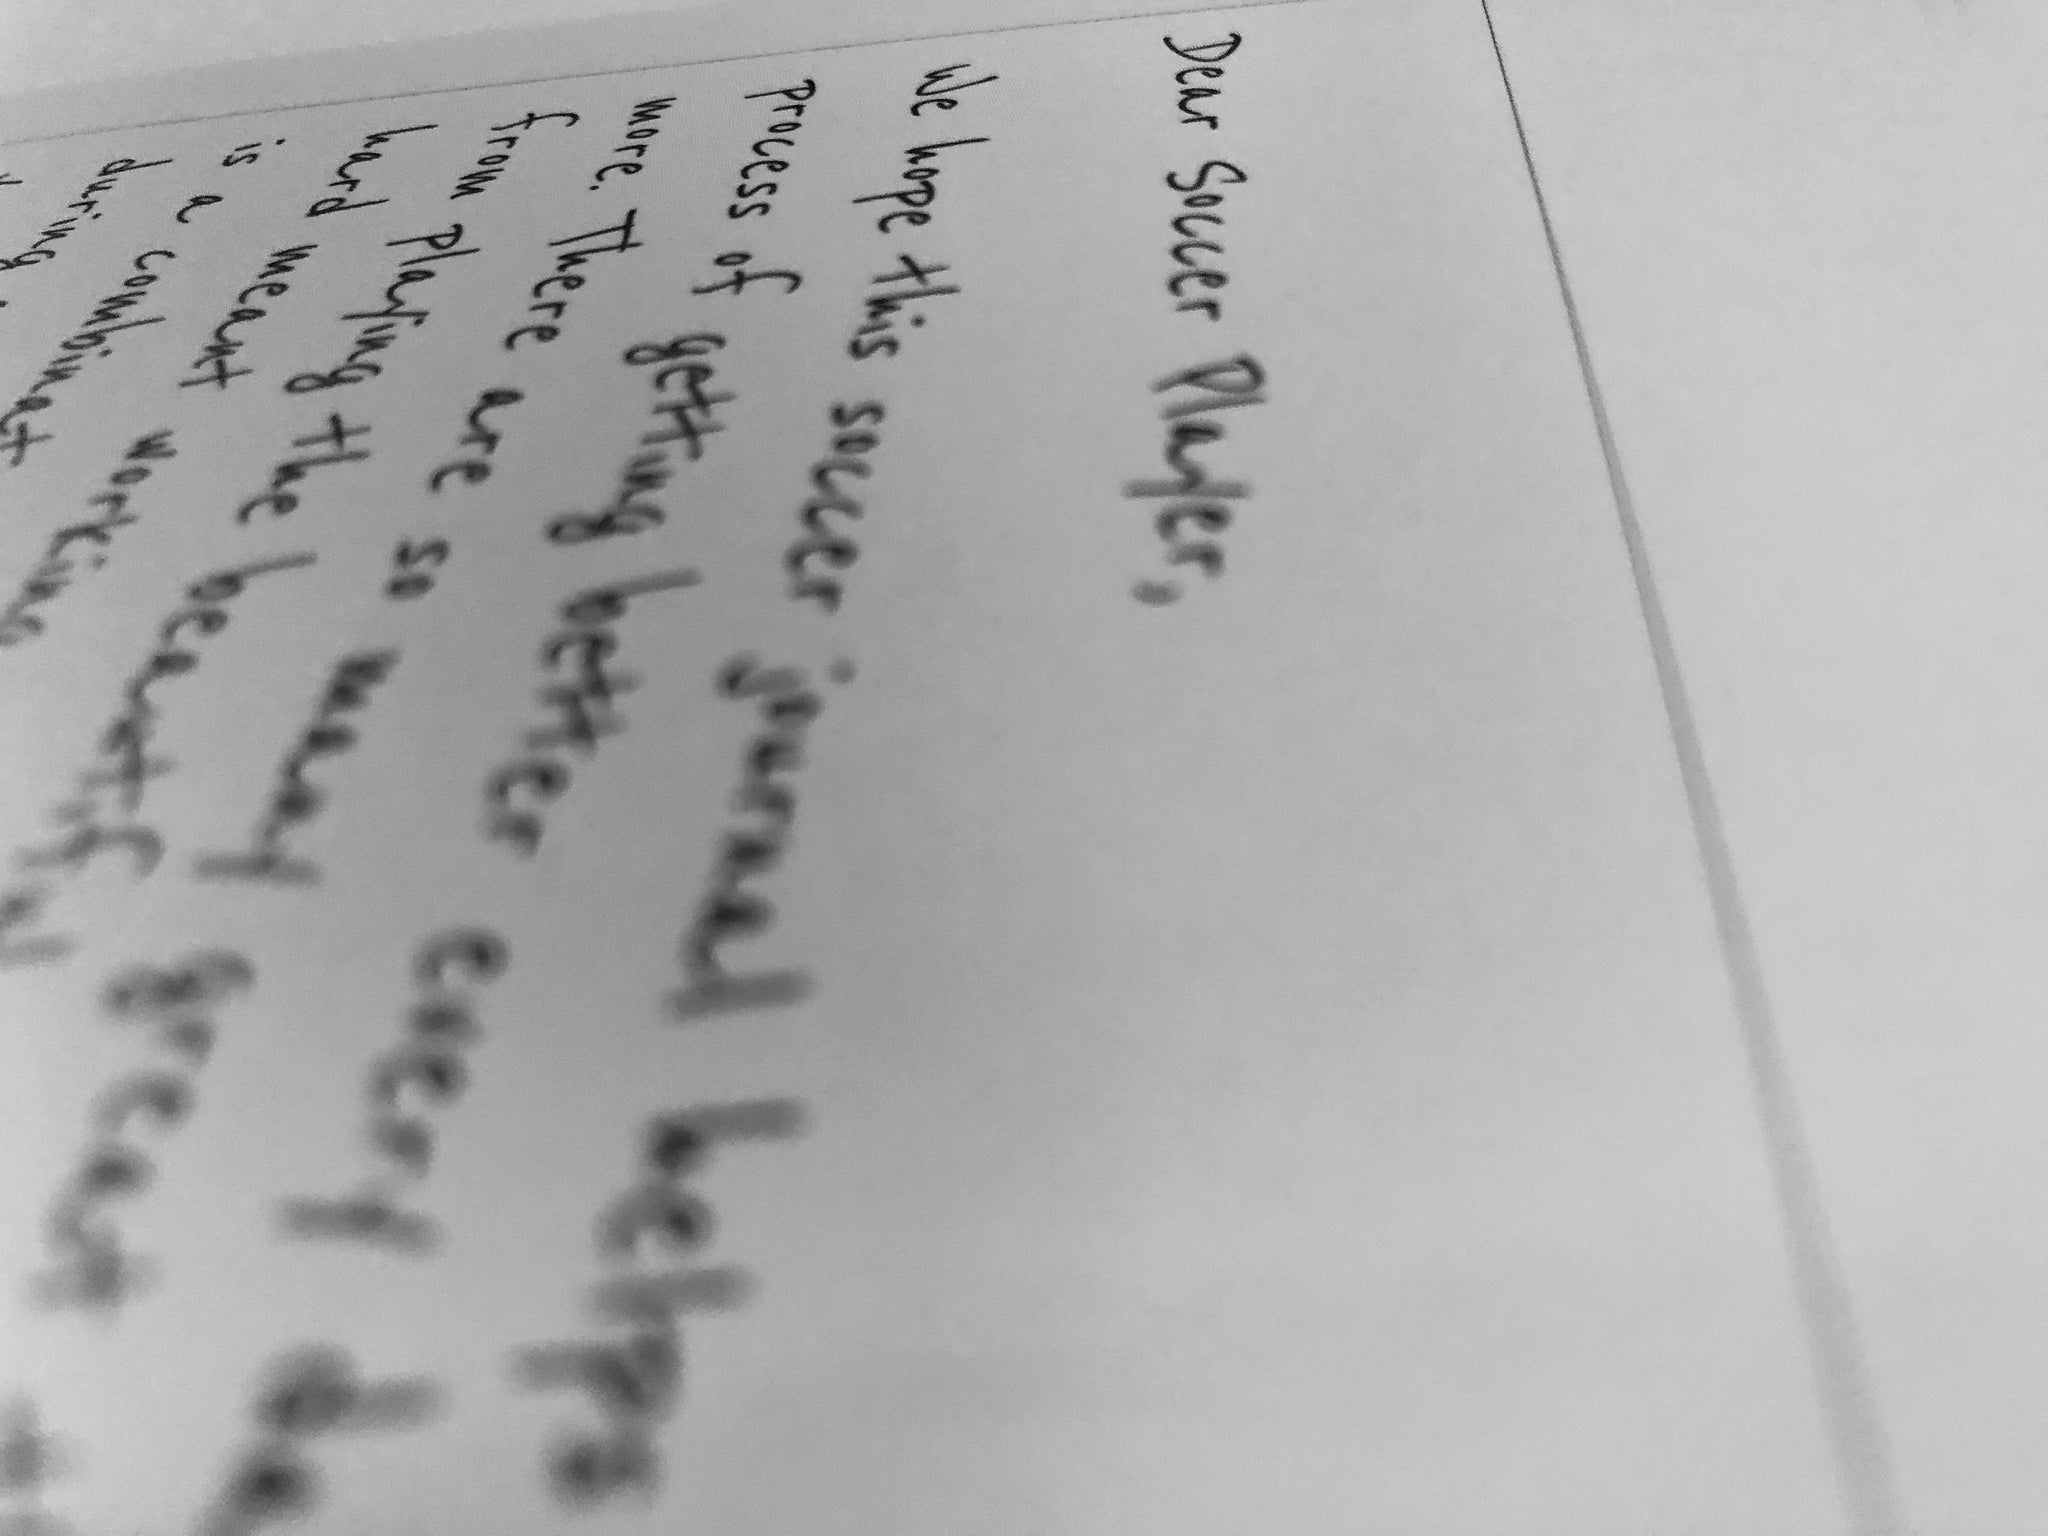 Dear Soccer Player,
We hope this soccer journal helps
process of getting better every da
more. There are so many great
from playing the beautiful
hard meant working
is a combinat
during